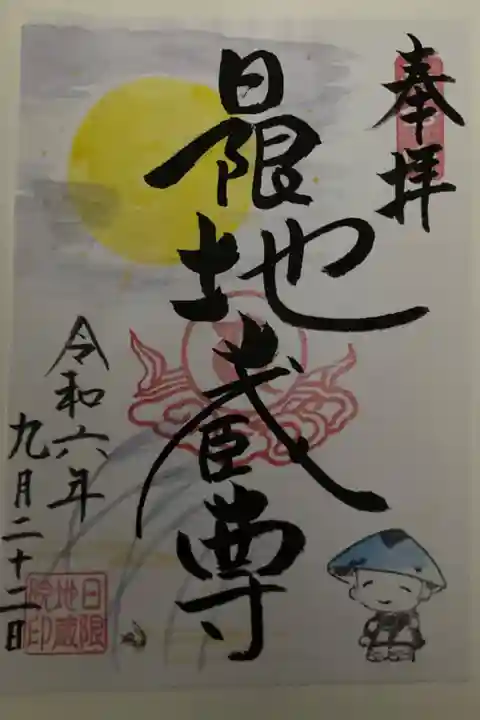 奉拝
日限地蔵尊
令和六年
九月二十二日
日限
地蔵
院印